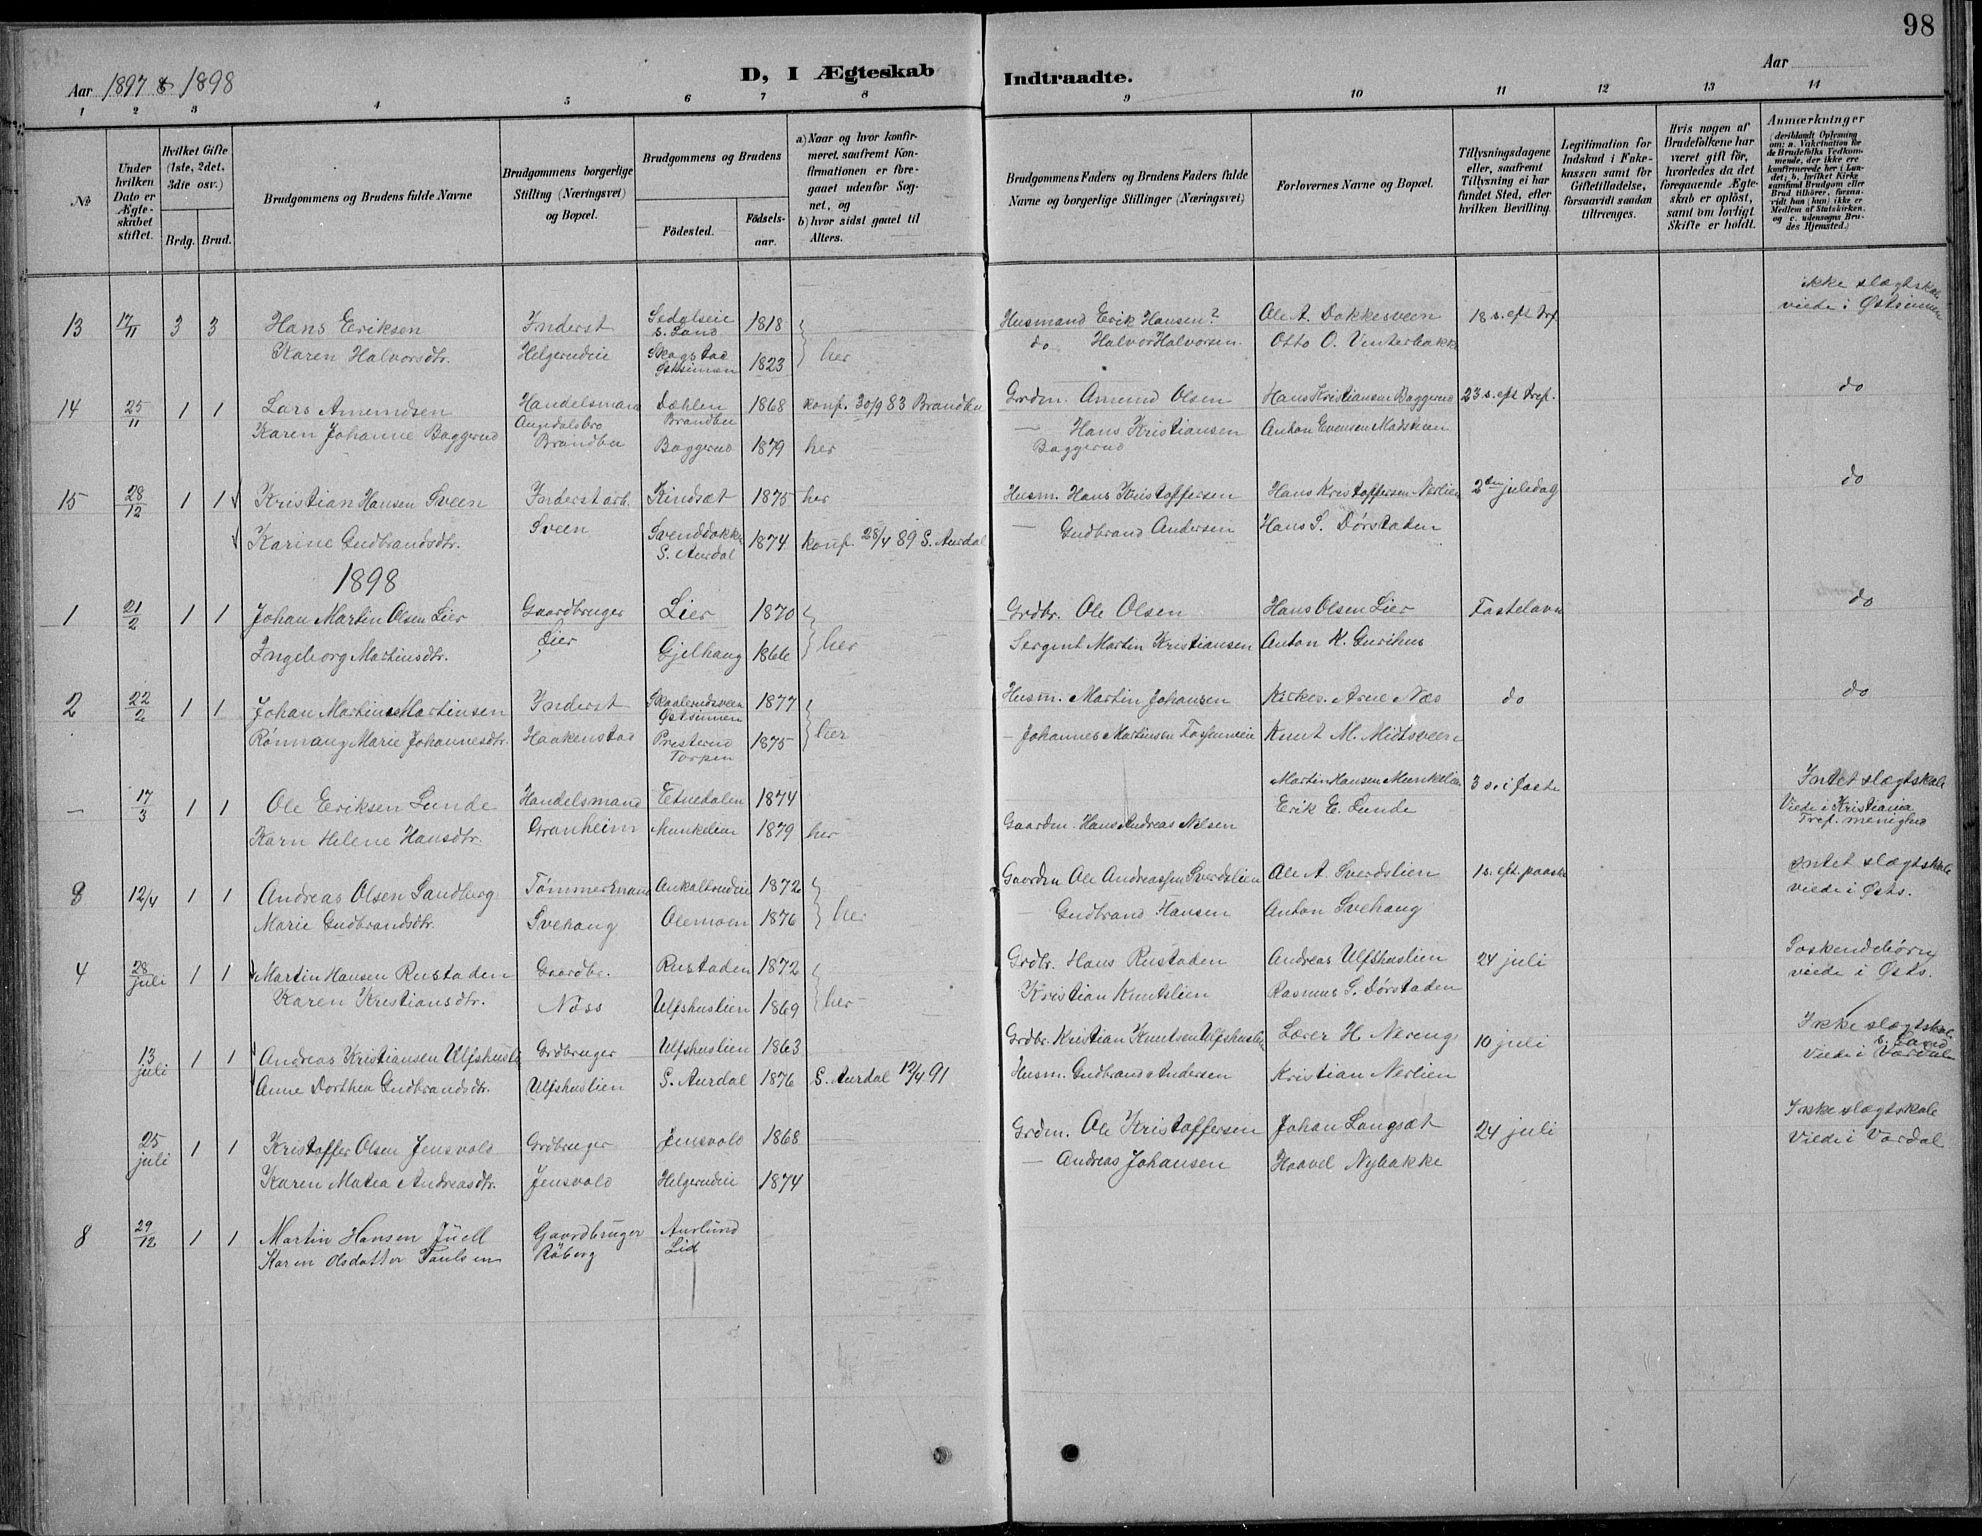 98
Aar 1897 & 1898
D, I Ægteskab Indtraadte.
Aar
1 2 3 4 5 6 7 8 9 10 11 12 13 14
No
Under hvilken Dato er Ægteskabet stiftet.
Hvilket Gifte (1ste, 2det, 3die osv.)
Brdg. Brud.
Brudgommens og Brudens fulde Navne
Brudgommens borgerlige Stilling (Næringsvei) og Bopæl.
Brudgommens og Brudens
Fødested.
Fødselsaar.
a) Naar og hvor konfirmeret, saafremt Konfirmationen er foregaaet udenfor Sognet, og
b) hvor sidst gaaet til Alters.
Brudgommens Faders og Brudens Faders fulde Navne og borgerlige Stillinger (Næringsvei)
Forlovernes Navne og Bopæl.
Tillysningsdagene eller, saafremt Tillysning ei har fundet Sted, efter hvilken Bevilling.
Legitimation for Indskud i Enkekassen samt for Giftetilladelse, forsaavidt saadan tiltrænges.
Hvis nogen af Brudefolkene har været gift før, hvorledes da det foregaaende Ægteskab er opløst, samt om lovligt Skifte er holdt.
Anmærkninger (deriblandt Oplysning om: a. Vakcination for de Brudefolks Vedkommende, der ikke ere konfirmerede her i Landet; b. hvilket Kirkesamfund Brudgom eller Brud tilhører, forsaavidt han (hun) ikke er Medlem af Statskirken, og c. udensogns Brudes Hjemsted.)
13 17/11 3 3 Hans Eriksen Inderst S. Land 1818 Husmand Erik Hansen? Ole A. Dokkesveen 18 s. eft Tref ikke slægtskab viede i Østsinnen
Karen Halvorsdtr. Helgerudeie Skogstad Østsinnen 1823 her do Halvor Halvorsen Otto O. Vinterbakke
14 25/11 1 1 Lars Amundsen Handelsmand Dæhlen Brandbu 1868 konf. 30/9 83 Brandbu Grdm. Amund Olsen Hans Kristiansen Baggerud 23 s. eft Tref. do
Karen Johanne Baggerud Augedalsbro Brandbu Baggerud 1879 her — Hans Kristiansen Baggerud Anton Evensen
15 28/12 1 1 Kristian Hansen Sveen Inderst arb. Kindsæt 1875 her Husm. Hans Kristoffersen Hans Kristoffersen Nerlien 2den juledag do
Karine Gudbrandsdtr. Sveen S. Aurdal 1874 konf. 28/4 89 S. Aurdal — Gudbrand Andersen Hans S. Dørstaden
1898
1 21/2 1 1 Johan Martin Olsen Lier Gaardbruger Lier 1870 Grdbr. Ole Olsen Hans Olsen Lier Fastelavn do
Ingeborg Martinsdtr. Lier Gjelhaug 1866 her Sergent Martin Kristiansen Anton K. Gurihus
2 22/2 1 1 Johan Martin Martinsen Inderst Skaalerudsveen Østsinnen 1877 Husm. Martin Johansen Kirkes. Arne Næs do do
Rönnaug Marie Johannesdtr. Haakenstad Presterud Torpen 1875 her — Johannes Martinsen Knut M. Midtsveen
— 17/3 1 1 Ole Eriksen Lunde Handelsmand Etnedalen 1874 Martin Hansen Munkelien 3 s. i faste Intet slægtskab
Karn Helene Hansdtr. Granheim Munkelien 1879 her Gaardm. Hans Andreas Nilsen Erik E. Lunde Viede i Kristiania Tref. menighed
3 12/4 1 1 Andreas Olsen Sandberg Tømmermand 1872 Gaardm Ole Andreassen Sverdslien Ole A. Sverdslien 1 s. eft. paaske Intet slægtskab viede i Østs.
Marie Gudbrandsdtr. Svehaug Olemoen 1876 her — Gudbrand Hansen Anton Svehaug
4 28 juli 1 1 Martin Hansen Rustaden Gaardbr. Rustaden 1872 Grdbr. Hans Rustaden Andreas Ulfshuslien 24 juli Søskendebørn viede i Østs.
Karen Kristiansdtr. Nøss Ulfshuslien 1869 her Kristian Knutslien Rasmus S. Dørstaden
13 juli 1 1 Andreas Kristiansen Ulfshusli Grdbruger Ulfshuslien 1863 Grdbr. Kristian Knutsen Ulfshuslien Lærer H. Nereng 10 juli Ikke slægtskab viede i Vardal S. Land
Anne Dorthea Gudbrandsdtr. Ulfshuslien S. Aurdal 1876 S. Aurdal 12/4 91 Husm. Gudbrand Andersen Kristian Nerlien
25 juli 1 1 Kristoffer Olsen Jensvold Grdbruger Jensvold 1868 Grdm. Ole Kristoffersen Johan Langsæt 24 juli Ikke slægtskab viede i Vardal
Karen Matea Andreasdtr. Jensvold Helgerudeie 1874 — Andreas Johansen Haavel Nybakke
8 29/12 1 1 Martin Hansen Juell Gaardbruger Aurlund
Karen Olsdatter Paulsen Røberg Lid